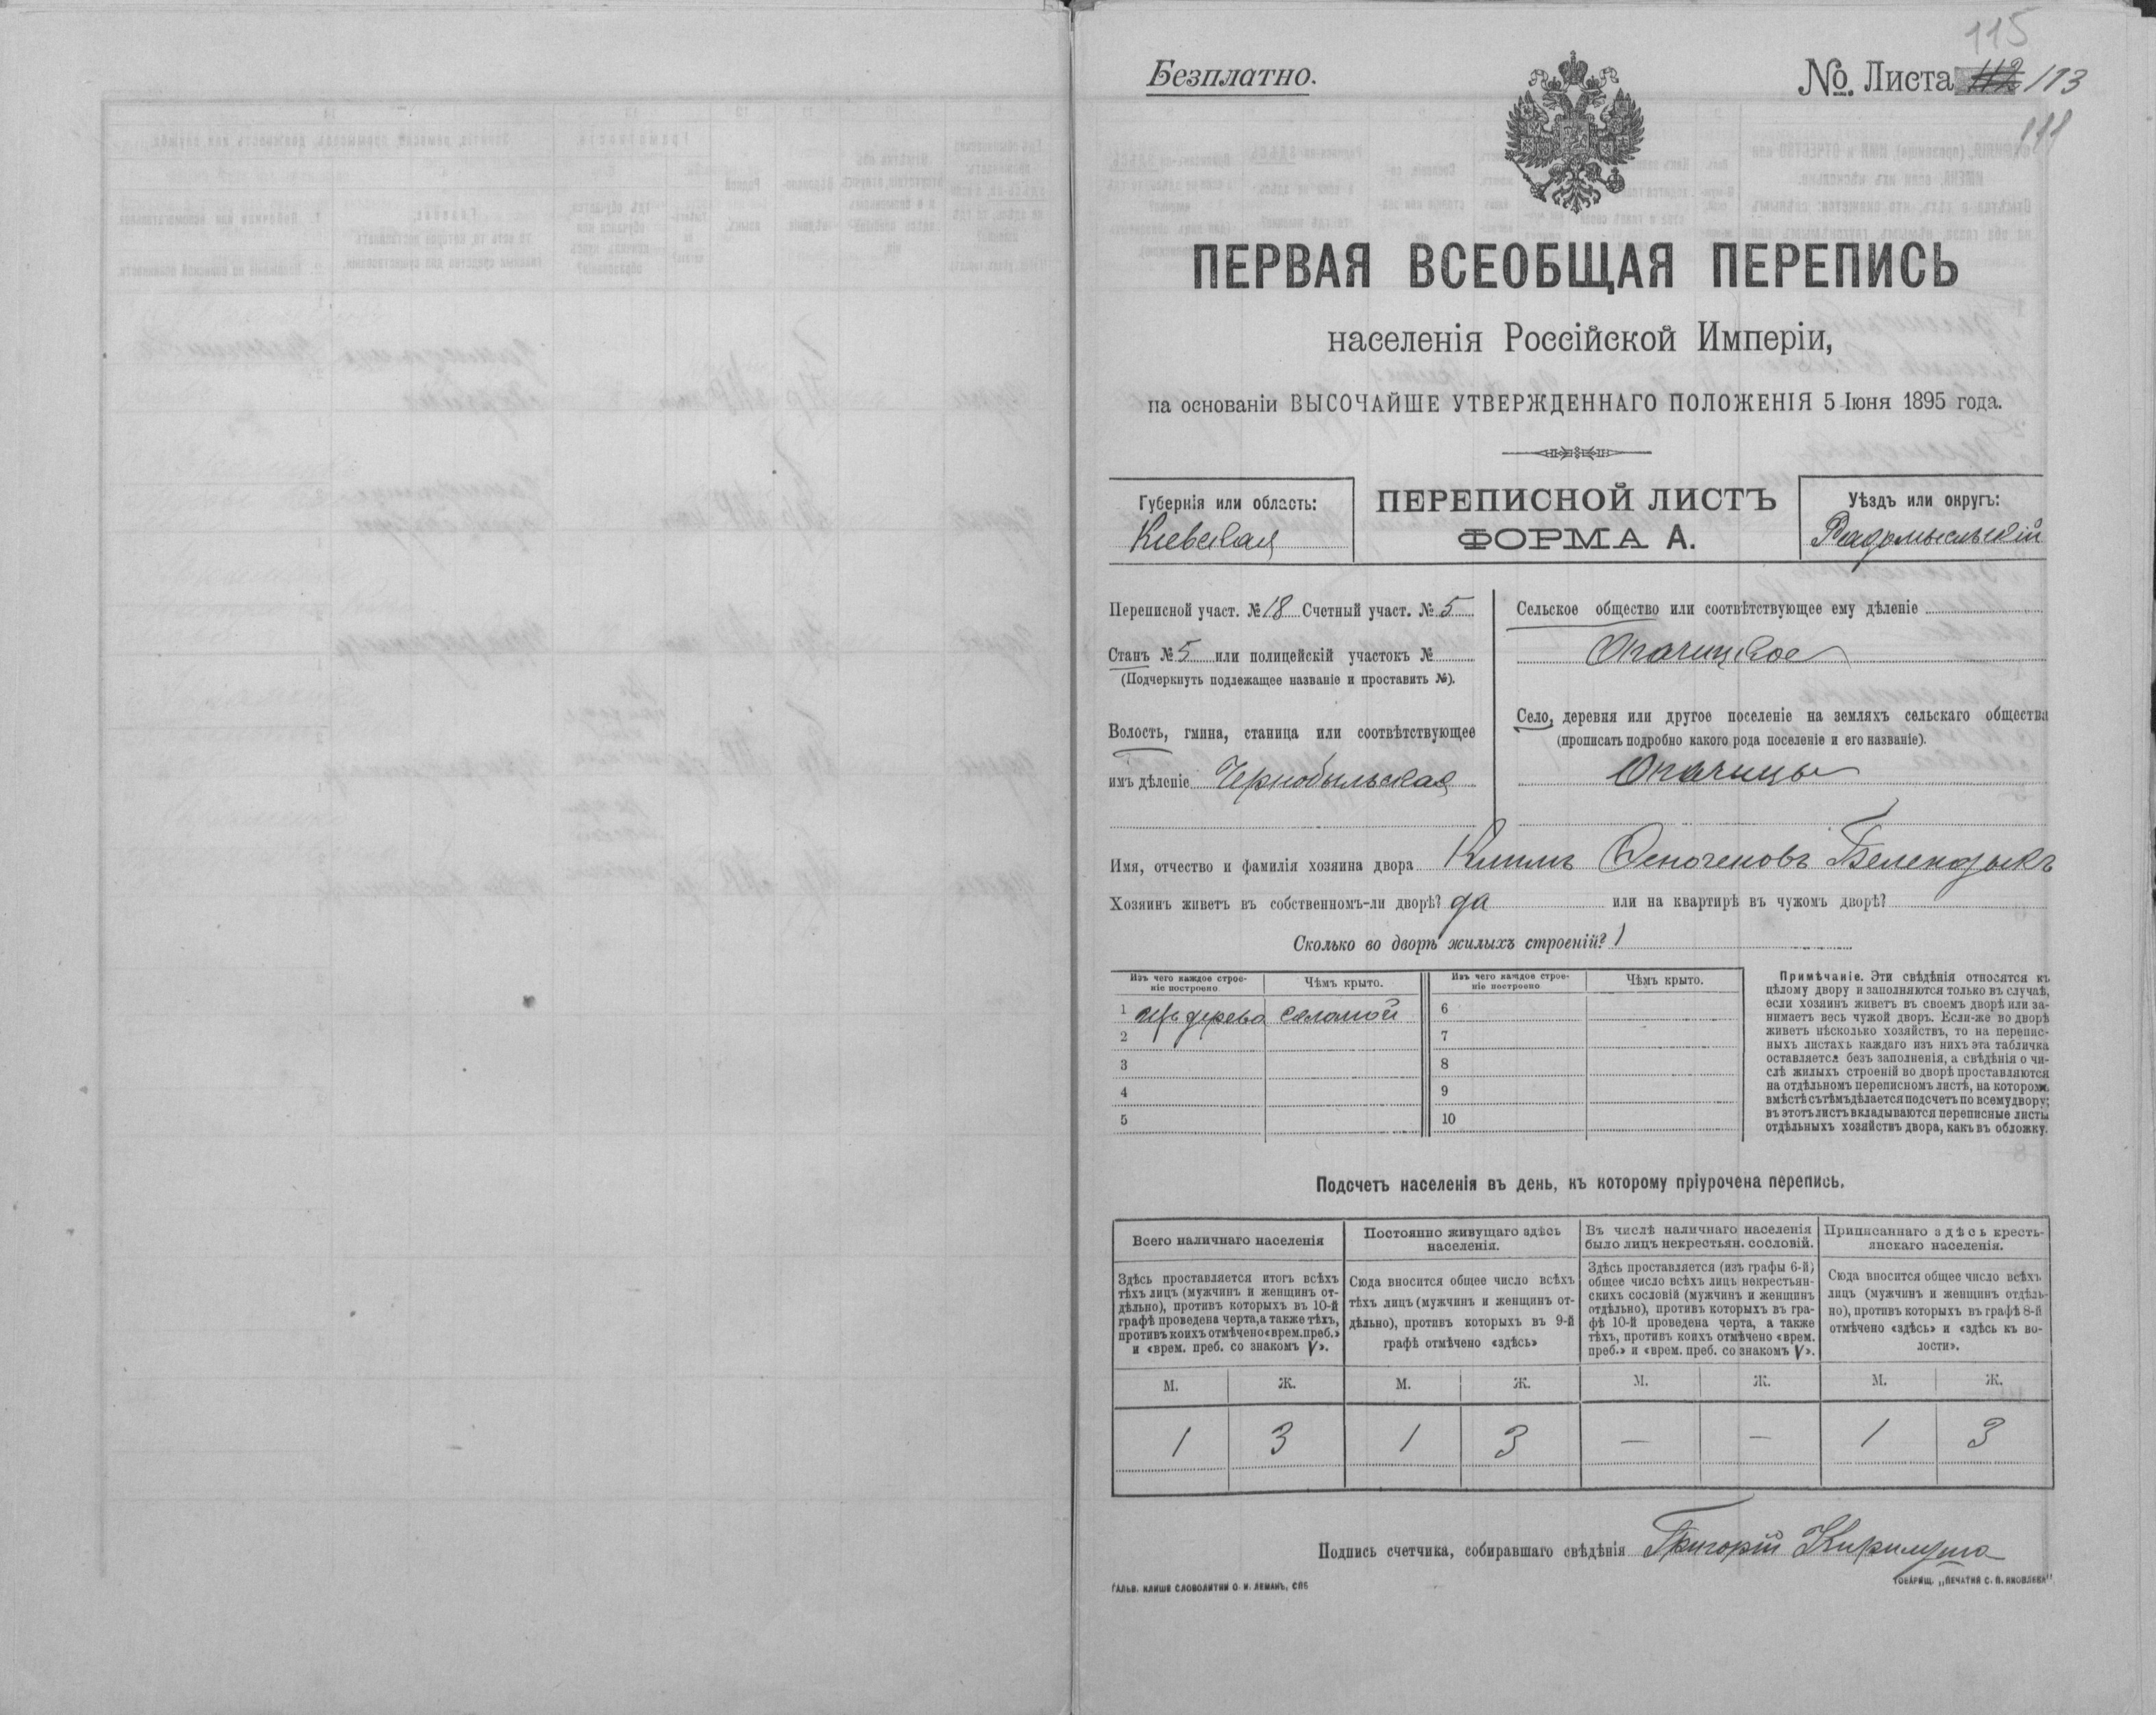 115
Безплатно.
№ Листа 112 113
111
ПЕРВАЯ ВСЕОБЩАЯ ПЕРЕПИСЬ
населенія Россійской Имперіи,
на основаніи ВЫСОЧАЙШЕ УТВЕРЖДЕННАГО ПОЛОЖЕНІЯ 5 Іюня 1895 года.
Губернія или область:
Кіевская
ПЕРЕПИСНОЙ ЛИСТЪ
ФОРМА А.
Уѣздъ или округъ:
Радомысльскій
Переписной участ. № 18 Счетный участ. № 5
Станъ № 5 или полицейскій участокъ №
(Подчеркнуть подлежащее названіе и проставить №).
Волость, гмина, станица или соотвѣтствующее
имъ дѣленіе Чернобыльская
Сельское общество или соотвѣтствующее ему дѣленіе
Опачицкое
Село, деревня или другое поселеніе на земляхъ сельскаго общества
(прописать подробно какого рода поселеніе и его названіе).
Опачицы
Имя, отчество и фамилія хозяина двора Климъ
Хозяинъ живетъ въ собственномъ-ли дворѣ? да или на квартирѣ въ чужомъ дворѣ?
Сколько во дворѣ жилыхъ строеній? 1
Изъ чего каждое строе-
ніе построено
Чѣмъ крыто.
Изъ чего каждое строе-
ніе построено
Чѣмъ крыто.
1 изъ дерева соломой 6
2 7
3 8
4 9
5 10
Примѣчаніе. Эти свѣдѣнія относятся къ
цѣлому двору и заполняются только въ случаѣ,
если хозяинъ живетъ въ своемъ дворѣ или за-
нимаетъ весь чужой дворъ. Если-же во дворѣ
живетъ нѣсколько хозяйствъ, то на перепис-
ныхъ листахъ каждаго изъ нихъ эта табличка
оставляется безъ заполненія, а свѣдѣнія о чи-
слѣ жилыхъ строеній во дворѣ проставляются
на отдѣльномъ переписномъ листѣ, на которомъ
вмѣстѣ съ тѣмъ дѣлается подсчетъ по всему двору;
въ этотъ листъ вкладываются переписные листы
отдѣльныхъ хозяйствъ двора, какъ въ обложку.
Подсчетъ населенія въ день, къ которому пріурочена перепись.
Всего наличнаго населенія
Здѣсь проставляется итогъ всѣхъ
тѣхъ лицъ (мужчинъ и женщинъ от-
дѣльно), противъ которыхъ въ 10-й
графѣ проведена черта, а также тѣхъ,
противъ коихъ отмѣчено «врем. преб.»
и «врем. преб. со знакомъ V».
Постоянно живущаго здѣсь
населенія.
Сюда вносится общее число всѣхъ
тѣхъ лицъ (мужчинъ и женщинъ от-
дѣльно), противъ которыхъ въ 9-й
графѣ отмѣчено «здѣсь»
Въ числѣ наличнаго населенія
было лицъ некрестьян. сословій.
Здѣсь проставляется (изъ графы 6-й)
общее число всѣхъ лицъ некрестьян-
скихъ сословій (мужчинъ и женщинъ
отдѣльно), противъ которыхъ въ гра-
фѣ 10-й проведена черта, а также
тѣхъ, противъ коихъ отмѣчено «врем.
преб.» и «врем. преб. со знакомъ V».
Приписаннаго здѣсь кресть-
янскаго населенія.
Сюда вносится общее число всѣхъ
лицъ (мужчинъ и женщинъ отдѣль-
но), противъ которыхъ въ графѣ 8-й
отмѣчено «здѣсь» и «здѣсь къ во-
лости».
М. Ж. М. Ж. М. Ж. М. Ж.
1 3 1 3 — — 1 3
Подпись счетчика, собиравшаго свѣдѣнія Григорій
ГАЛЬВ. КЛИШЕ СЛОВОЛИТНИ О. И. ЛЕМАНЪ, СПБ
ТОВАРИЩ. „ПЕЧАТНЯ С. П. ЯКОВЛЕВА"